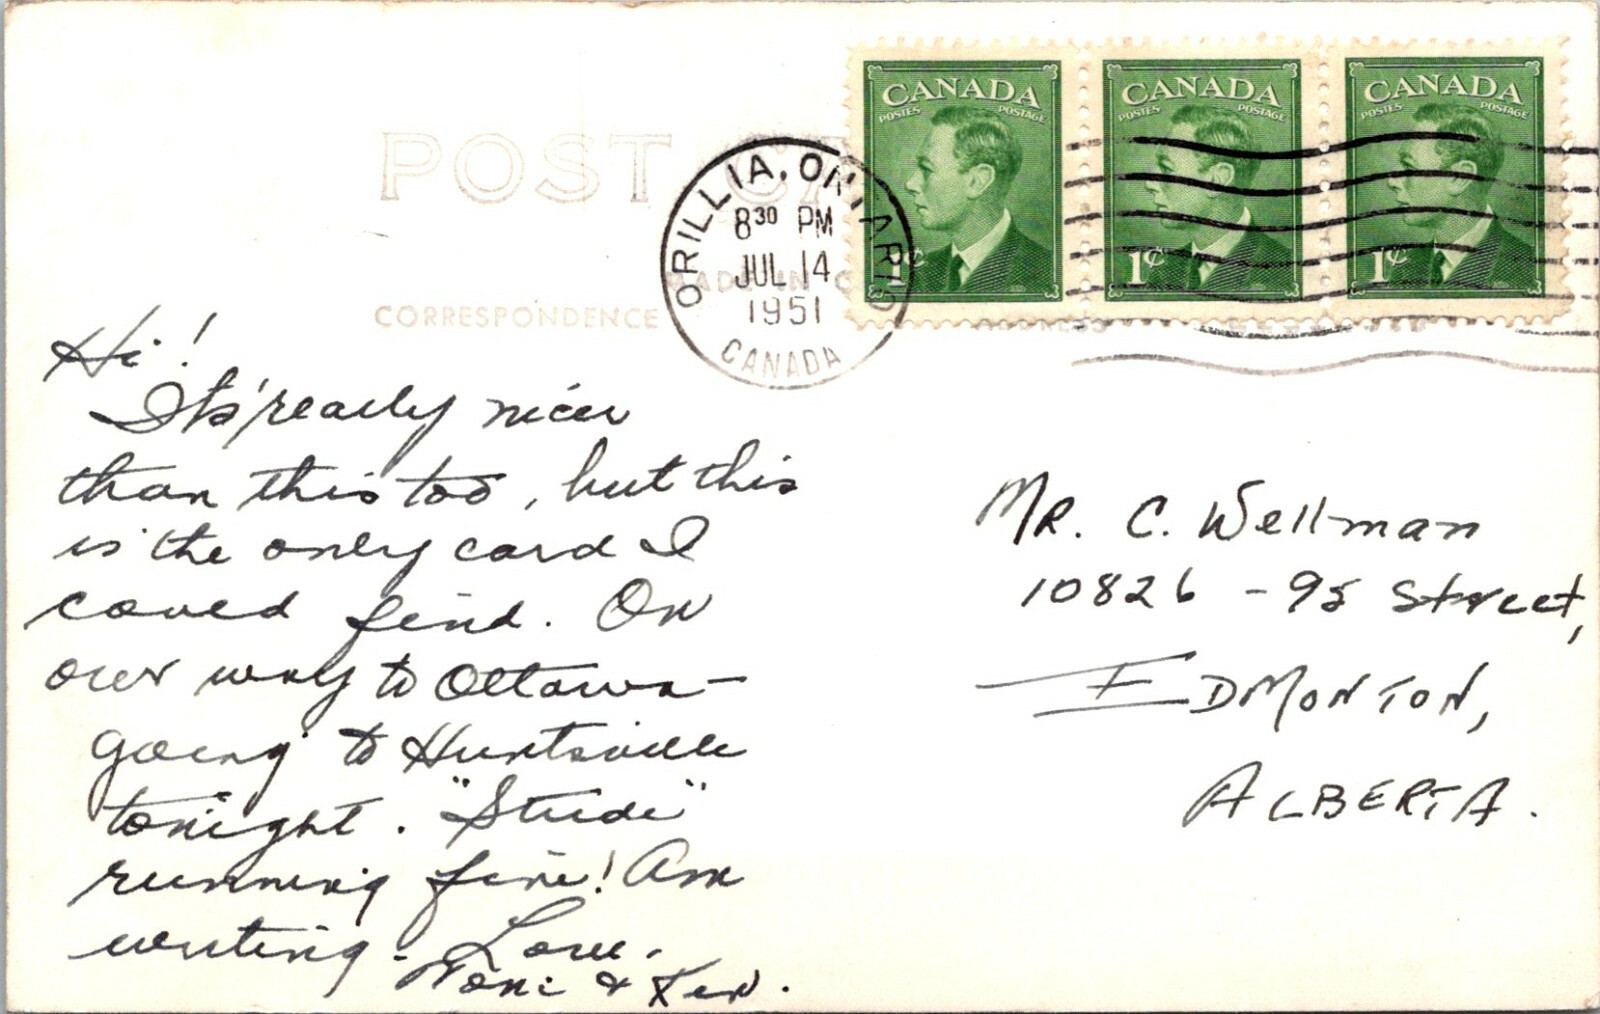 POST CA
CORRESPONDENCE
MADE IN C
ORILLIA, ONTARIO
8³⁰ PM
JUL 14
1951
CANADA
CANADA
POSTES POSTAGE
1¢
CANADA
POSTES POSTAGE
1¢
CANADA
POSTES POSTAGE
1¢
Hi!
Its' really nicer
than this too, but this
is the only card I
could find. On
our way to Ottawa -
going to Huntsville
tonight. "Stude"
running fine! Am
writing - Love,
Toni & Ken.
Mr. C. Wellman
10826 - 95 Street,
EDMONTON,
ALBERTA.